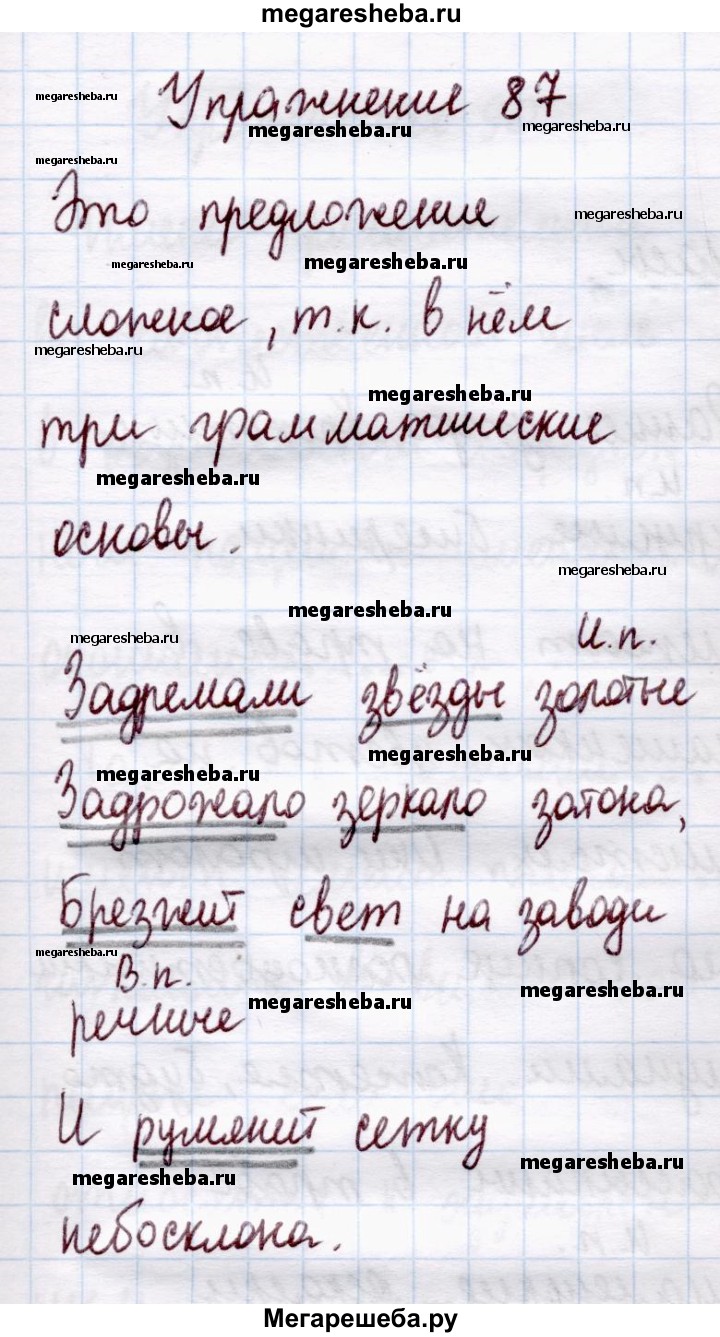 megaresheba.ru
Упражнение 87
megaresheba.ru
megaresheba.ru
megaresheba.ru
megaresheba.ru
Это предложение
megaresheba.ru
megaresheba.ru
megaresheba.ru
сложное, т.к. в нём
megaresheba.ru
megaresheba.ru
три грамматические
megaresheba.ru
основы.
megaresheba.ru
megaresheba.ru
И.п.
megaresheba.ru
Задремали звёзды золотые
megaresheba.ru
megaresheba.ru
Задрожало зеркало затона,
Брезжит свет на заводи
megaresheba.ru
В.п.
megaresheba.ru
речные
megaresheba.ru
И румянит сетку
megaresheba.ru
megaresheba.ru
небосклона.
Мегарешеба.ру